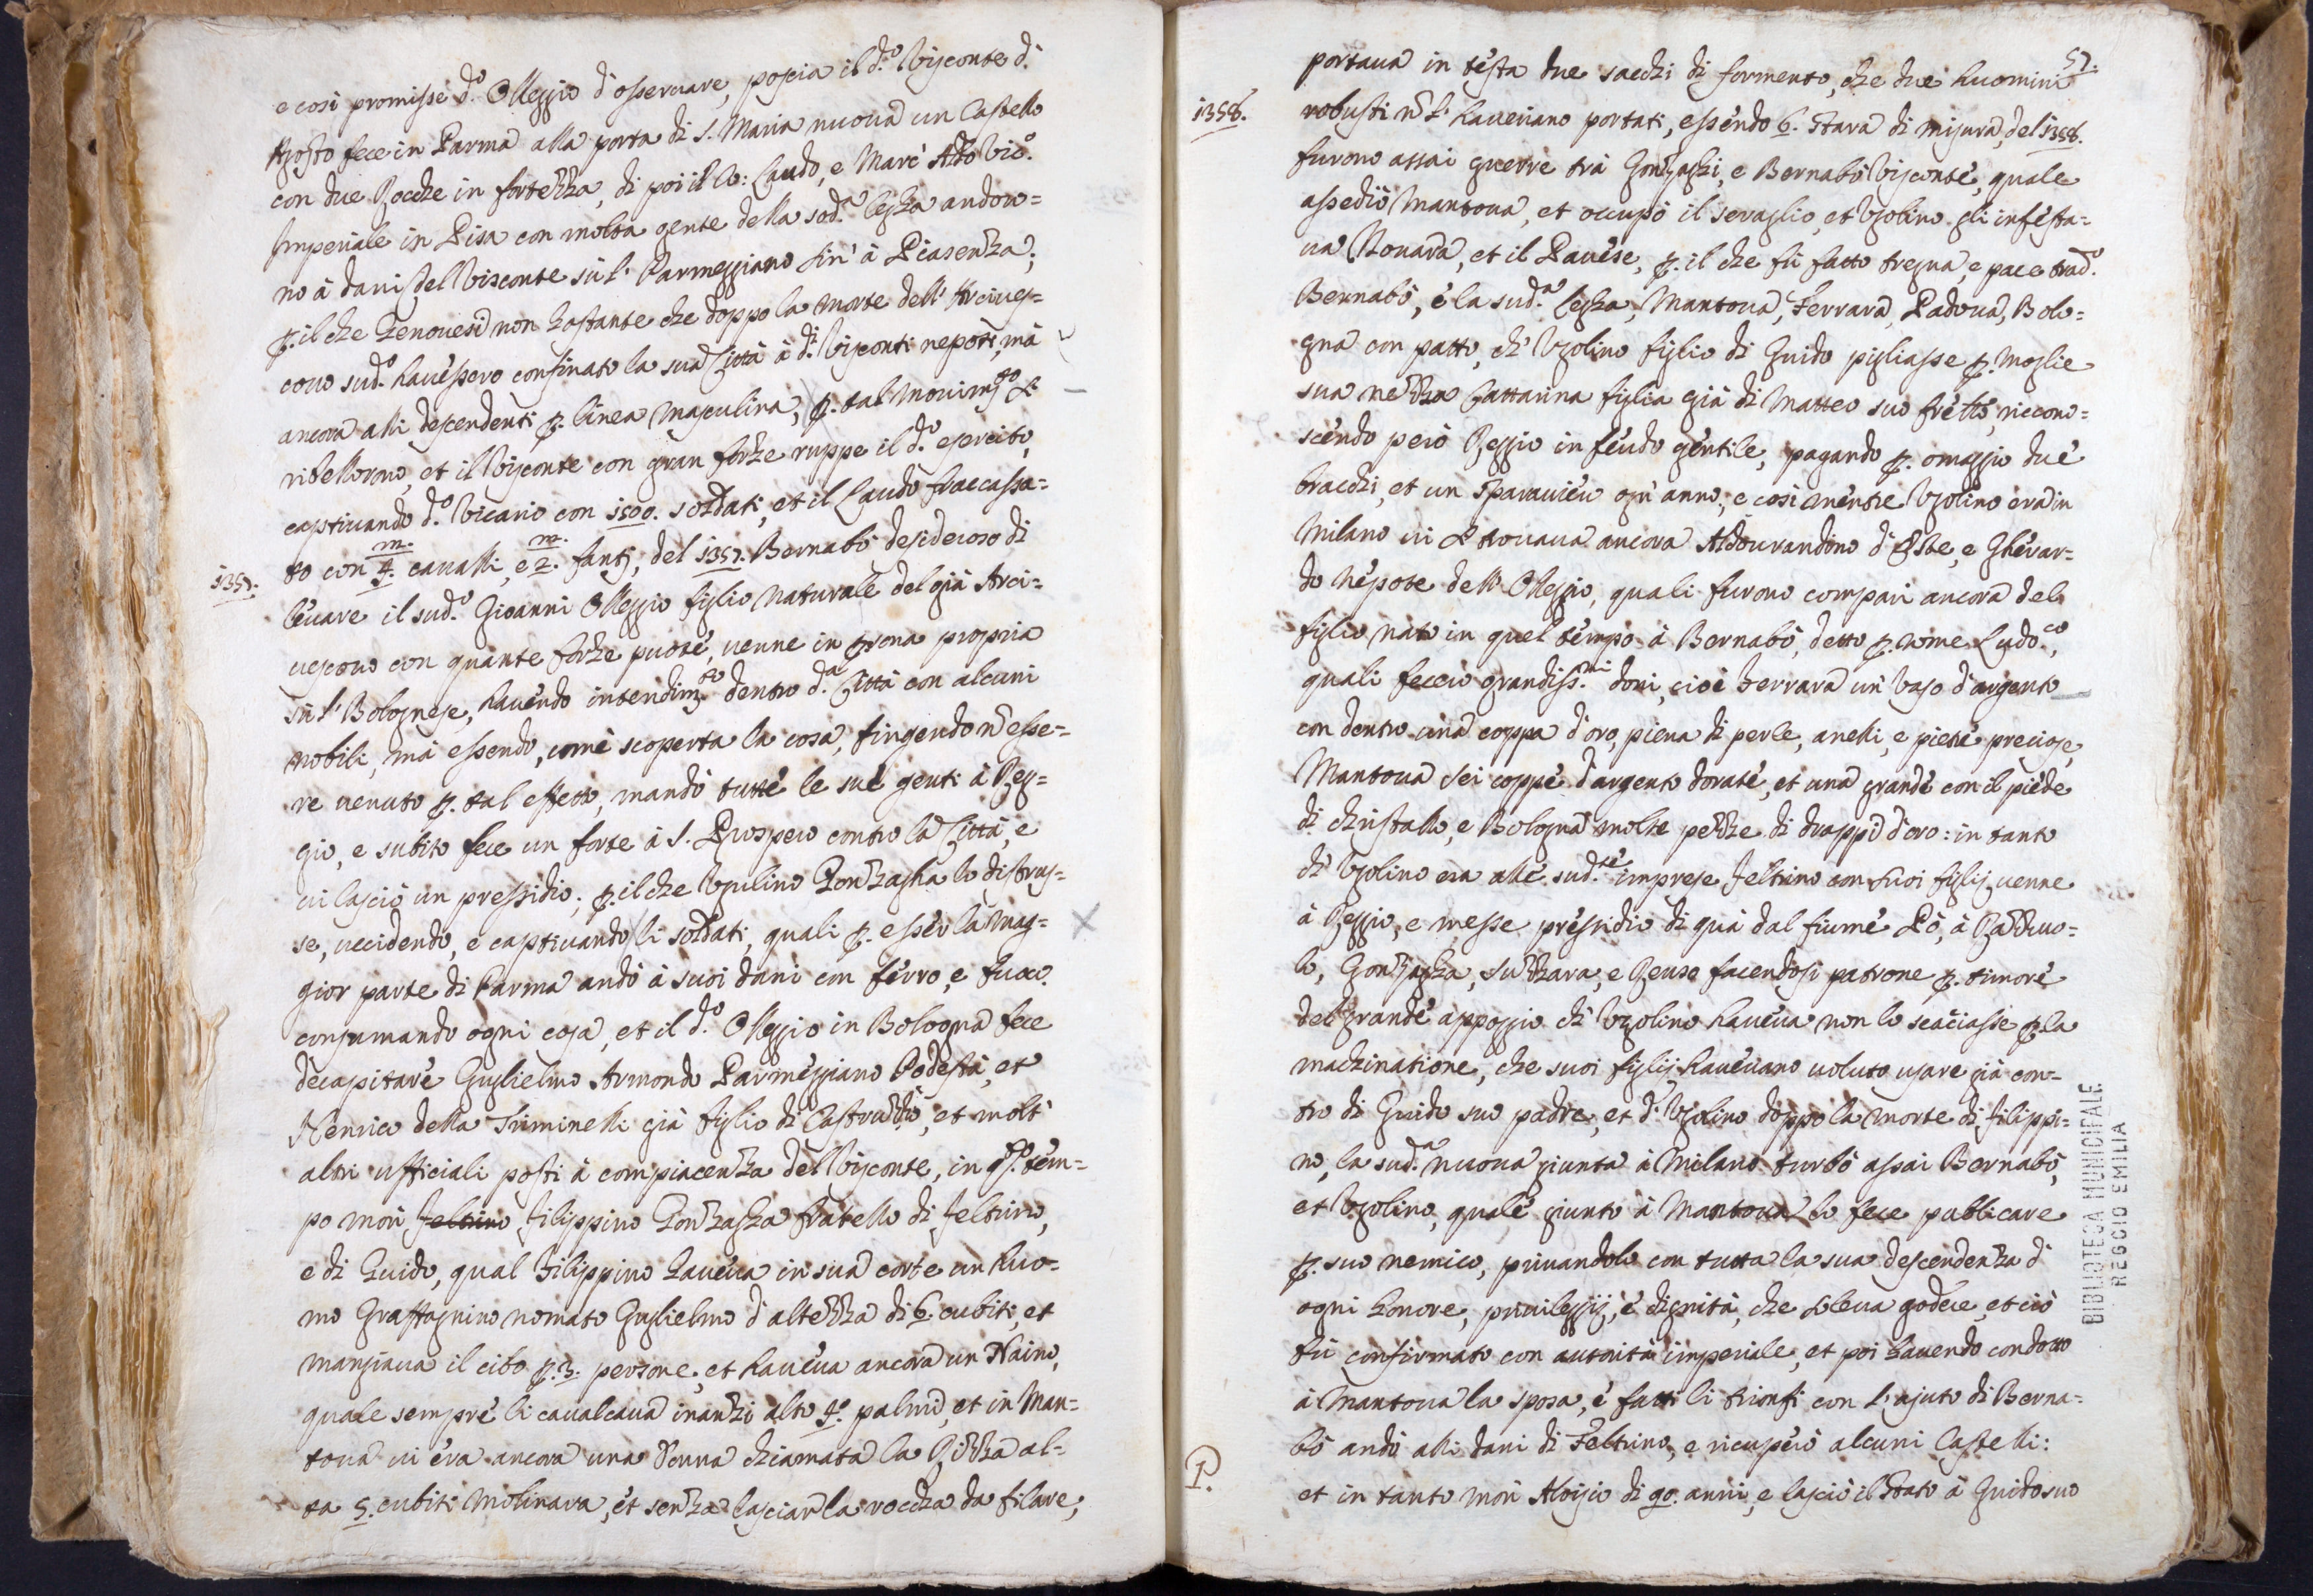 e così promisse d.º Olleggio d'osservare, poscia il d.º Visconte d'
Agosto fece in Parma alla porta di S. Maria nuova un Castello
con due Rocche in fortezza, di poi il Co: Laudo, e Marc' Ado Vic.º
Imperiale in Pisa con molta gente della sod.ª legha andor=
no à dani del Visconte sù l' Parmeggiano sin' à Piasenza;
p. il che Genovesi non hostante che doppo la morte dell' Arcives=
covo sud.º havessero confinato la sua Città à d.i Visconti nepoti, mà
ancora alli descendenti p. linea masculina, p. tal movim.to si
ribellorono, et il Visconte con gran forze ruppe il d.º esercito,
captivando d.º Vicario con 1500. soldati, et il Laudo fraccassa=
to con 4.m cavalli, e 2.m fanti, del 1357. Bernabò desideroso di
1357.
levare il sud.º Gioanni Olleggio figlio naturale del già Arci=
vescovo con quante forze puotè, venne in p.sona propria
sù l' Bolognese, havendo intendim.to dentro d.ª Città con alcuni
nobili, mà essendo, come scoperta la cosa, fingendo nõ esse=
re venuto p. tal effetto, mandò tutte le sue genti à Reg=
gio, e subito fece un forte à S. Prospero contro la Città, e
vi lasciò un pressidio; p. il che Ugulino Gonzagha lo distrus=
se, uccidendo, e captivando li soldati, quali p. esser la mag=
gior parte di Parma andò à suoi dani con ferro, e fuoco.
consumando ogni cosa, et il d.º Olleggio in Bologna fece
decapitare Guglielmo Armondo Parmeggiano Podestà, et
Henrico della Triminelli già figlio di Castruccio, et molti
altri ufficiali posti à compiacenza del Visconte, in q.sto tem=
po morì Feltrino Filippino Gonzagha fratello di Feltrino,
e di Guido, qual Filippino haveva in sua corte un huo=
mo Graffagnino nomato Guglielmo d'altezza di 6. cubiti, et
mangiava il cibo p. 3. persone, et haveva ancora un Naino,
quale sempre li cavalcava inanzi alto 4.º palmi, et in Man=
tova vi era ancora una Donna chiamata la Rizza al=
ta 5. cubiti Molinara, et senza lasciar la roccha da filare,
57.
portava in testa due sacchi di formento, che due huomini
1358.
robusti nõ l' haveriano portati, essendo 6. stara di misura, del 1358.
furono assai guerre trà Gonzaghi, e Bernabò Visconte, quale
assediò Mantova, et occupò il seraglio, et Ugolino gli infesta=
va Novara, et il Pavese, p. il che fù fatto tregua, e pace tra d.º
Bernabò, e la sud.ª legha, Mantova, Ferrara, Padova, Bolo=
gna con patto, ch' Ugolino figlio di Guido pigliasse p. moglie
sua nezza Cattarina figlia già di Matteo suo fr̃ello, riccono=
scendo però Reggio in feudo gentile, pagando p. omaggio due
bracchi, et un sparavier ogn' anno, e così mentre Ugolino era in
Milano vi si trovava ancora Aldourandino d'Este, e Gherar=
do nepote dell' Olleggio, quali furono compari ancora del
figlio nato in quel tempo à Bernabò, detto p. nome Ludo.co,
quali feccero grandiss.mi doni, cioè Ferrara un' vaso d'argento
con dentro una coppa d'oro, piena di perle, anelli, e pietre preciose,
Mantova sei coppe d'argento dorate, et una grande con il piede
di christallo, e Bologna molte pezze di drappi d'oro: in tanto
ch' Ugolino era alle sud.te imprese Feltrino con suoi figlij venne
à Reggio, e messe pressidio di quà dal fiume Pò, à Razzuo=
lo, Gonzagha, Suzzara, e Reuso facendosi patrone p. timore
del grande appoggio ch' Ugolino haveva non lo scaciasse p. la
machinatione, che suoi figlij havevano voluto usare già con=
tro di Guido suo padre, et d.º Ugolino doppo la morte di Filippi=
no, la sud.ª nuova giunta à Milano turbò assai Bernabò,
et Ugolino, quale giunto à Mantova lo fece pubblicare
p. suo nemico, privandolo con tutta la sua descendenza d'
ogni honore, privileggij, e dignità, che soleva godere, et ciò
fù confirmato con autorità imperiale, et poi havendo condotto
à Mantova la sposa, e fatti li trionfi con l' ajuto di Berna=
bò andò alli dani di Feltrino, e ricuperò alcuni Castelli:
et in tanto morì Aloisio di 90. anni, e lasciò il Stato à Guido suo
P.
BIBLIOTECA MUNICIPALE
REGGIO EMILIA